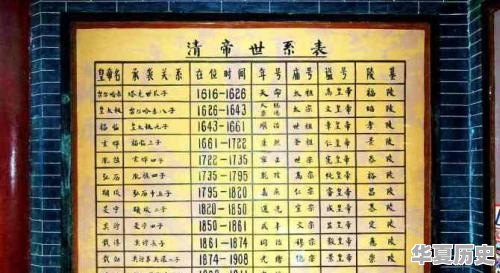 清帝世系表
皇帝名 承袭关系 在位时间 年号 庙号 谥号 陵墓
努尔哈赤 塔克世长子 1616-1626 天命 太祖 高皇帝 福陵
皇太极 努尔哈赤八子 1626-1643 天聪 崇德 太宗 文皇帝 昭陵
福临 皇太极九子 1643-1661 顺治 世祖 章皇帝 孝陵
玄烨 福临三子 1661-1722 康熙 圣祖 仁皇帝 景陵
胤禛 玄烨四子 1722-1735 雍正 世宗 宪皇帝 泰陵
弘历 胤禛四子 1735-1795 乾隆 高宗 纯皇帝 裕陵
颙琰 弘历十五子 1795-1820 嘉庆 仁宗 睿皇帝 昌陵
旻宁 颙琰二子 1820-1850 道光 宣宗 成皇帝 慕陵
奕詝 旻宁四子 1850-1861 咸丰 文宗 显皇帝 定陵
载淳 奕詝长子 1861-1874 同治 穆宗 毅皇帝 惠陵
1874-1908 光绪 德宗 景皇帝 崇陵
华夏历史